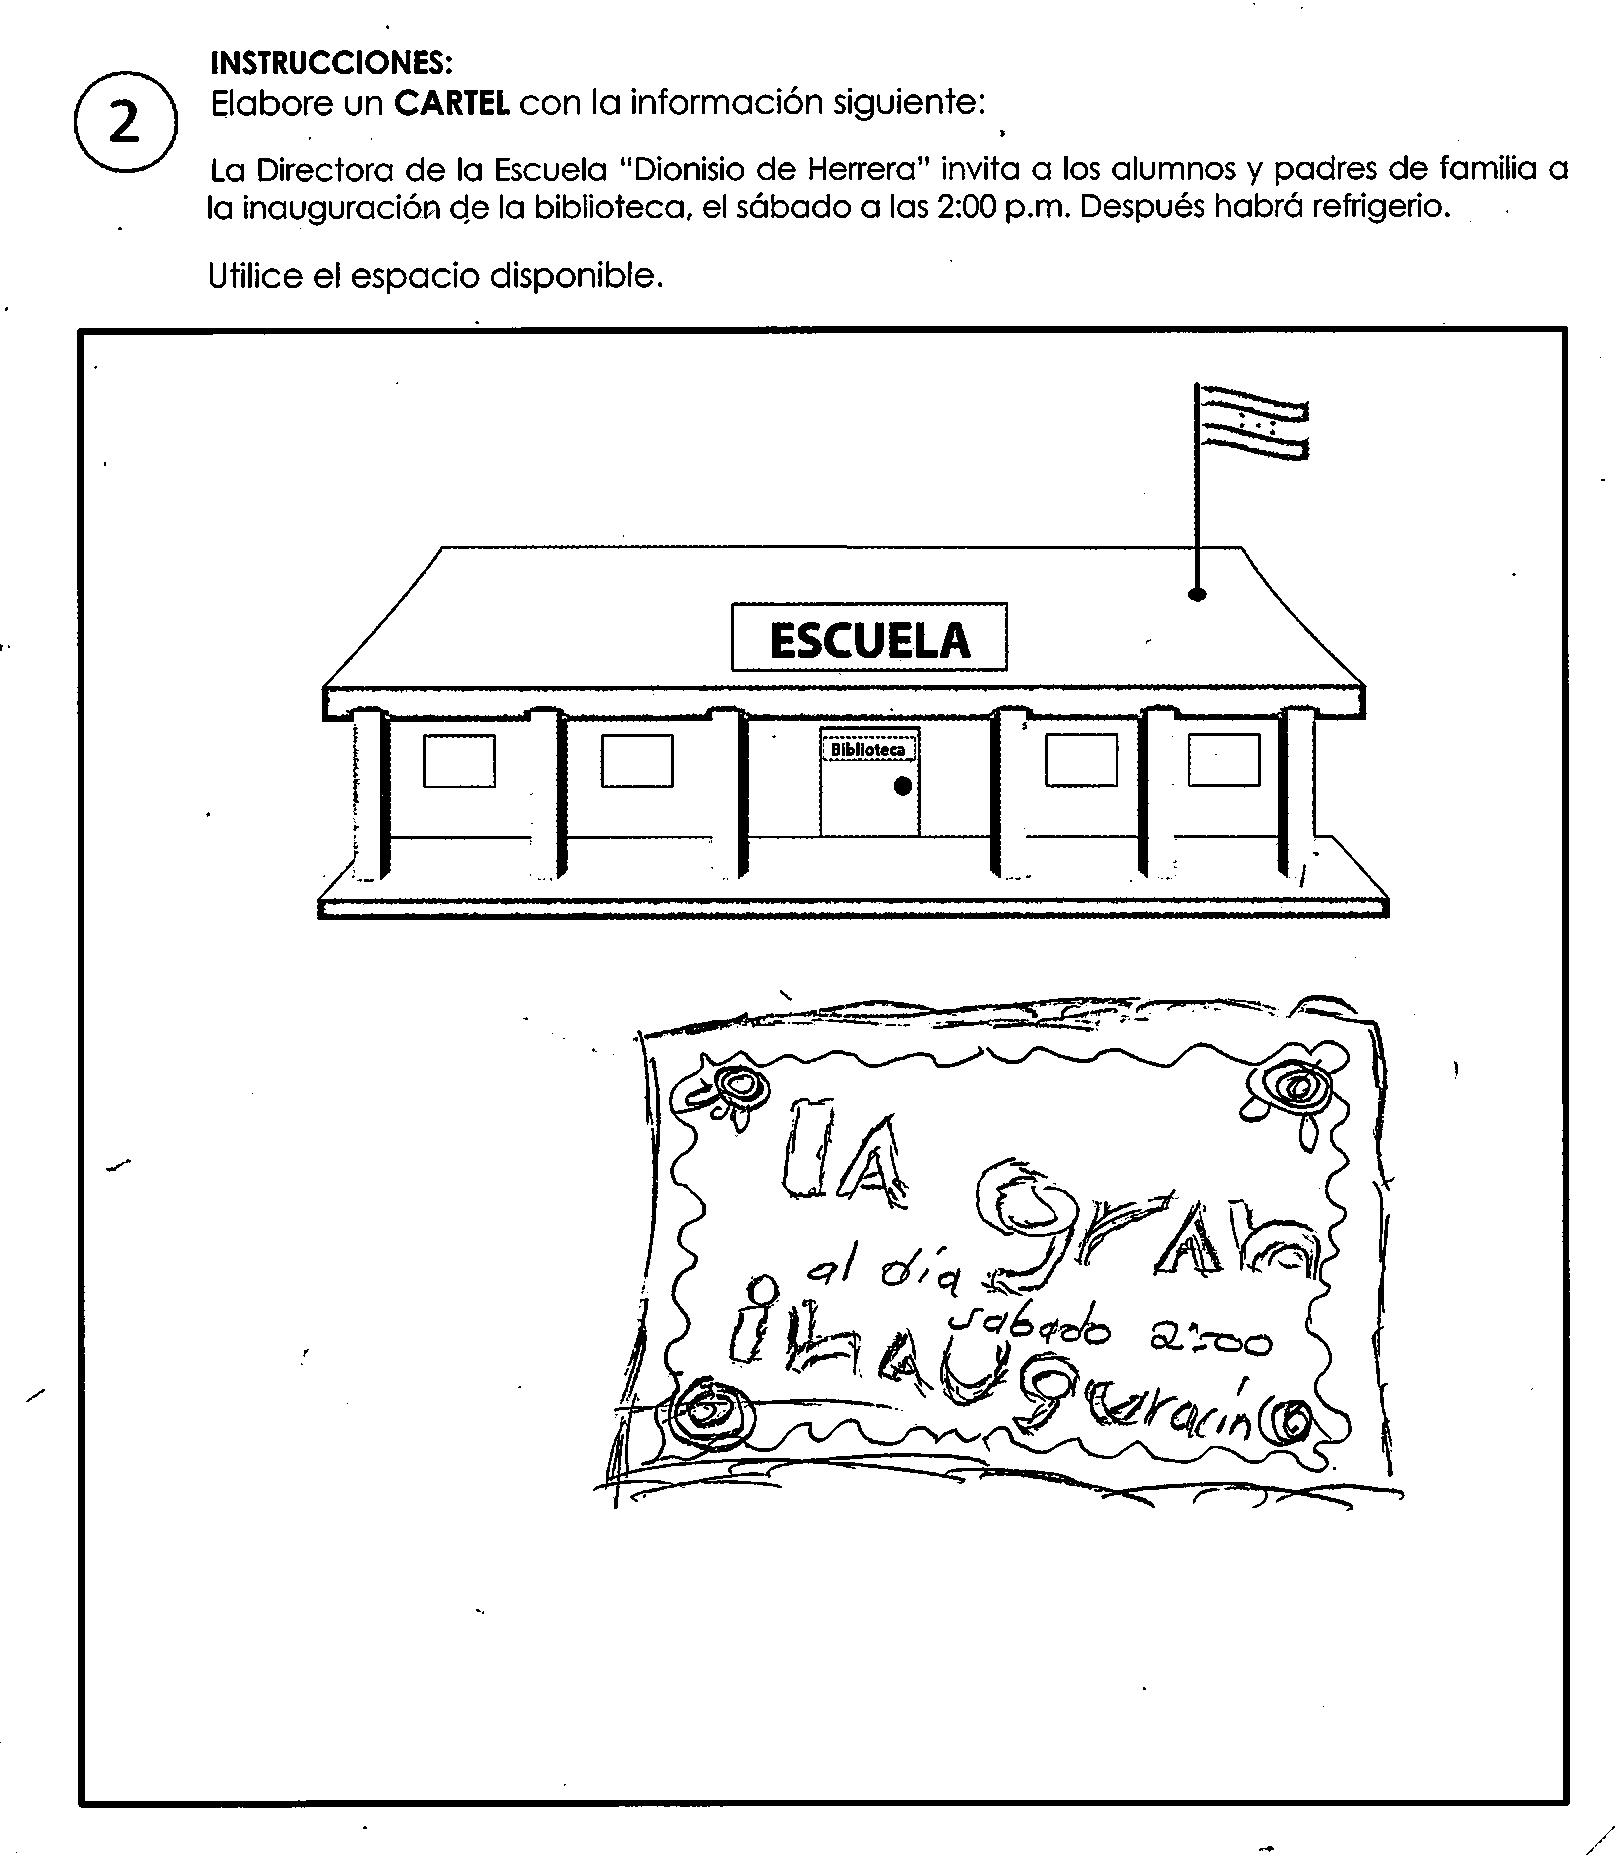 INSTRUCCIONES:
2
Elabore un CARTEL con la información siguiente:
La Directora de la Escuela "Dionisio de Herrera" invita a los alumnos y padres de familia a
la inauguración de la biblioteca, el sábado a las 2:00 p.m. Después habrá refrigerio.
Utilice el espacio disponible.
ESCUELA
Biblioteca
lA
grAn
al día
sabado 2:00
inAUguracín